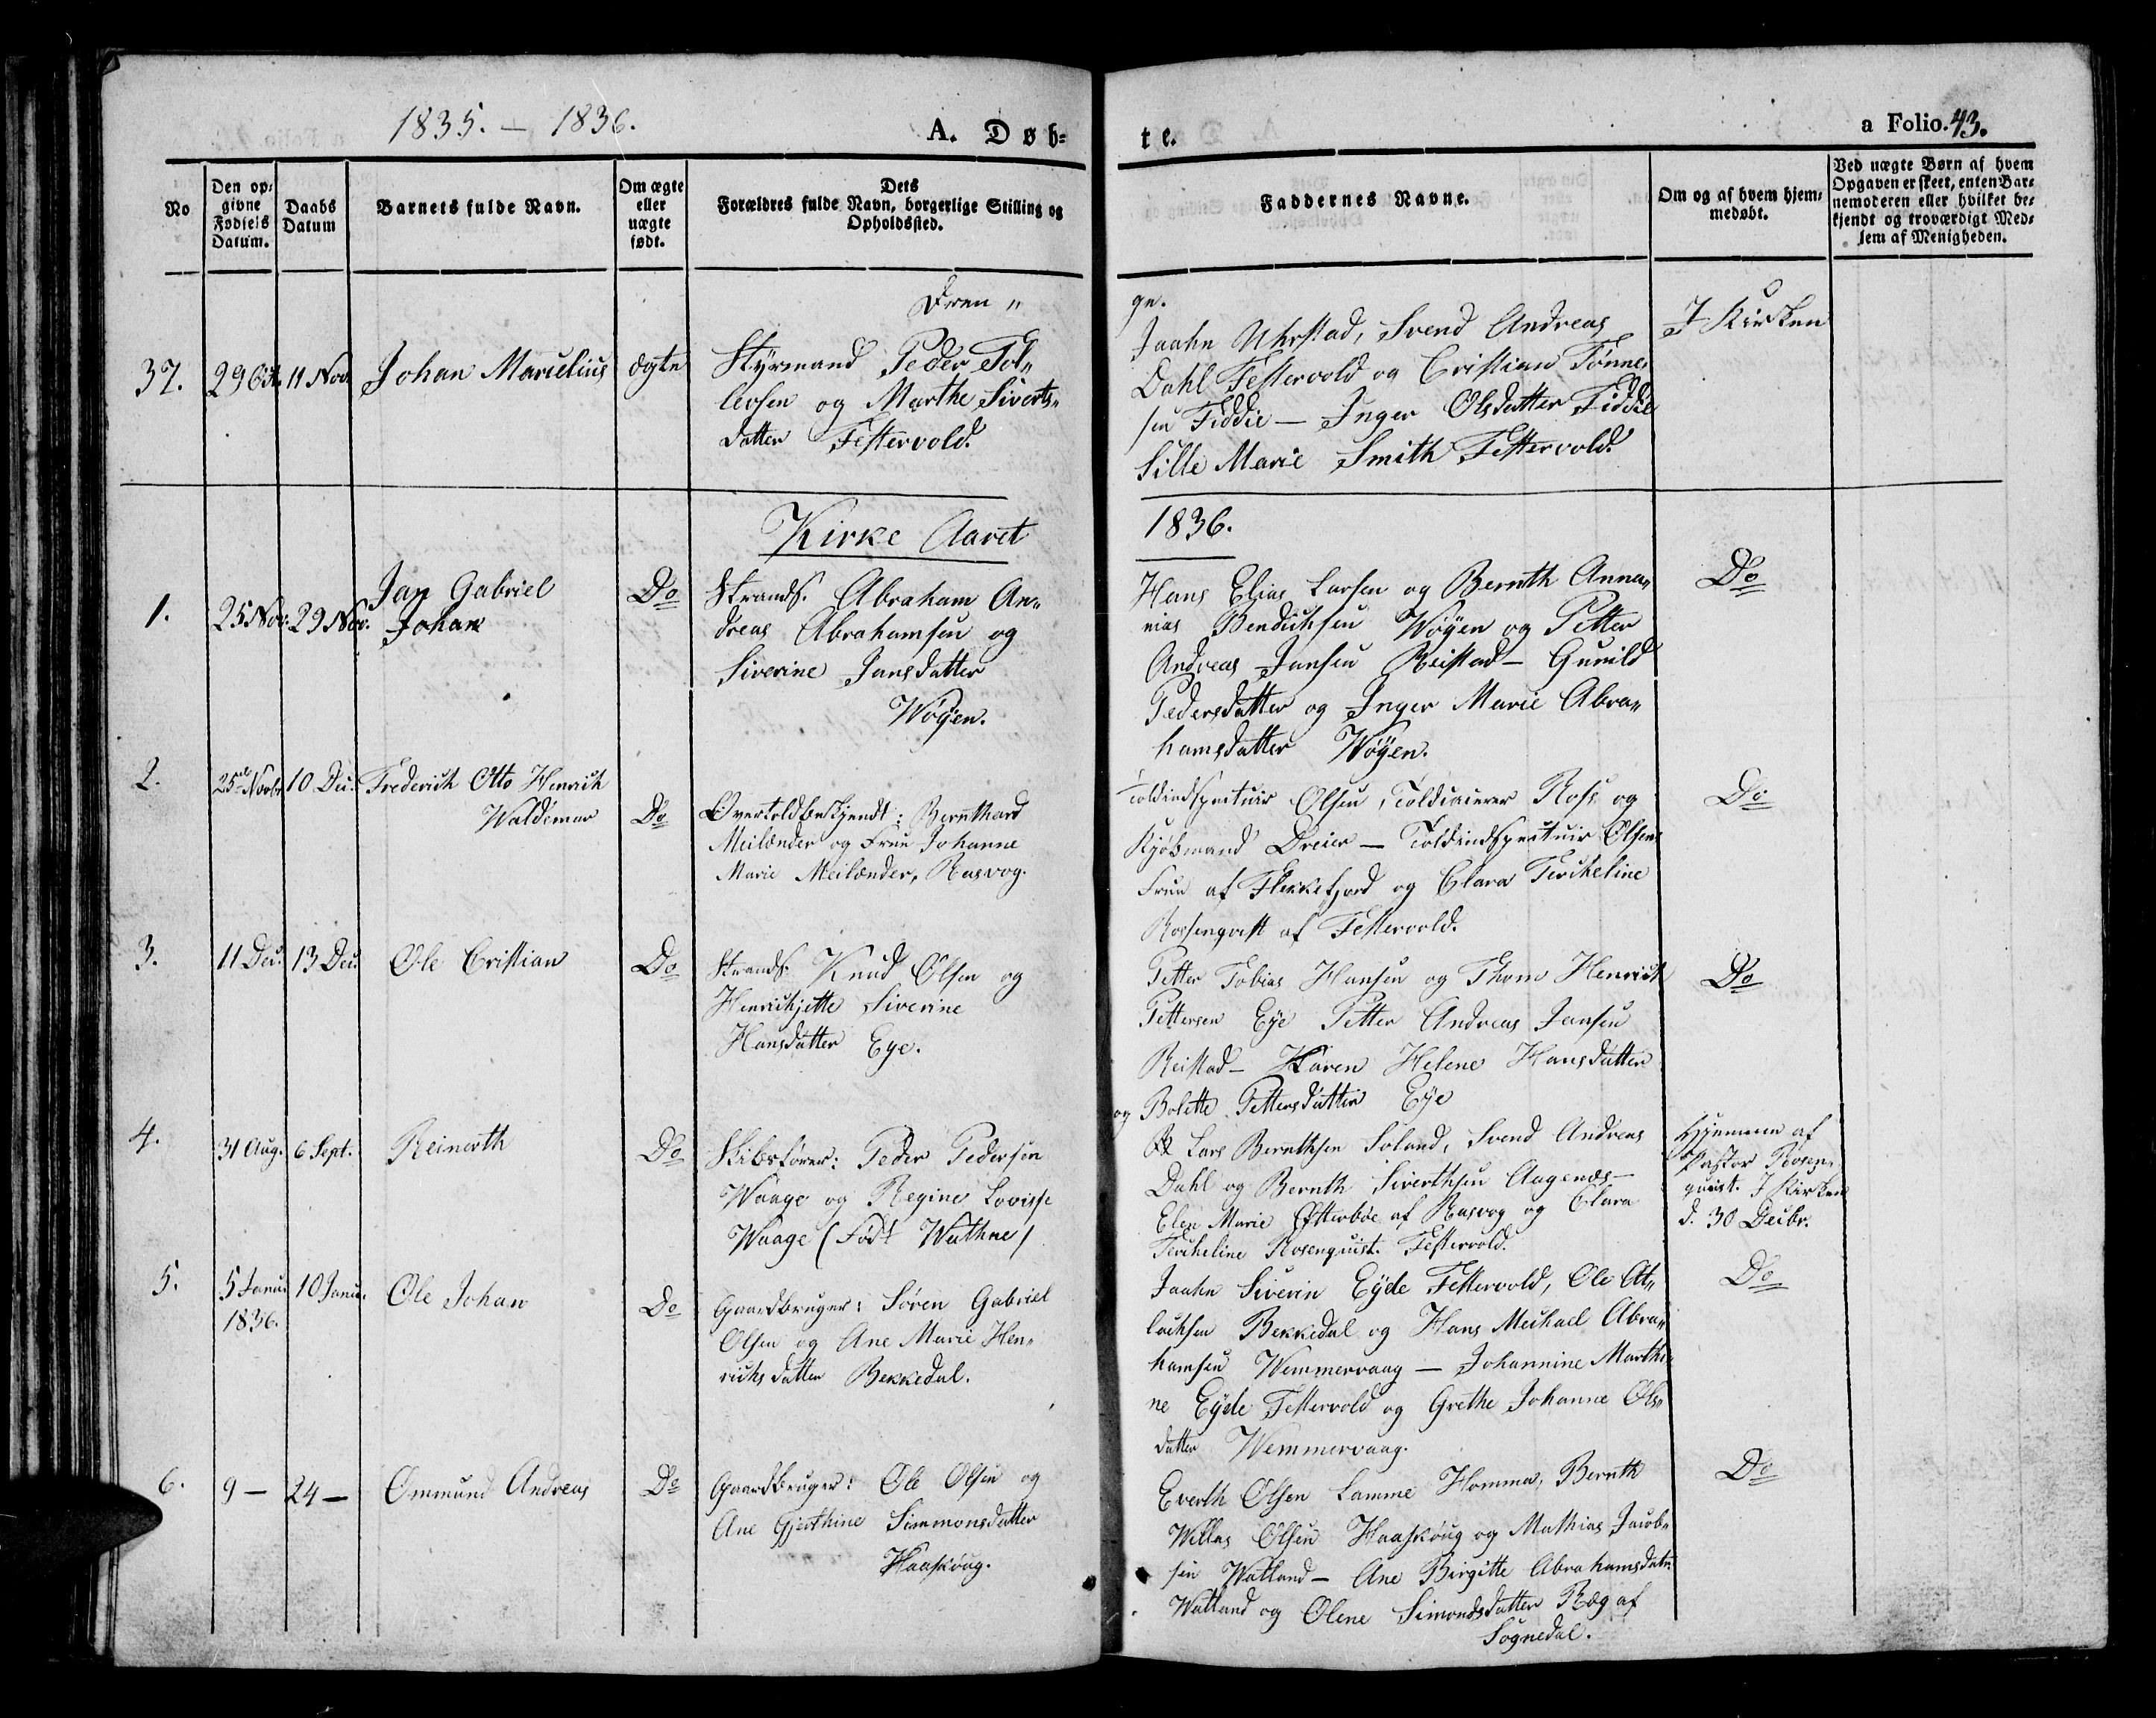 1835. – 1836.
A. Døb=
te.
a Folio. 43.
No
Den op=
givne
Fødsels
Datum.
Daabs
Datum
Barnets fulde Navn.
Om ægte
eller
uægte
født.
Dets
Forældres fulde Navn, borgerlige Stilling og
Opholdssted.
Faddernes Navne.
Om og af hvem hjem=
medøbt.
Ved uægte Børn af hvem
Opgaven er skeet, enten Bar=
nemoderen eller hvilket be=
kjendt og troværdigt Med=
lem af Menigheden.
Dren„
ge.
37.
29 Oct.
11 Nov.
Johan Marielius
ægte
Styrmand Peder Tol„
levsen og Marthe Siverts„
datter Festervold.
Jaahn Uhrstad, Svend Andreas
Dahl Festervold og Cristian Tønne„
sen Fiddie – Inger Olsdatter Fiddie
Sille Marie Smith Festervold.
I Kirken
Kirke Aaret
1836.
1.
25 Nov.
29 Nov.
Jan Gabriel
Johan
Do
Strands. Abraham An„
dreas Abrahamsen og
Siverine Jansdatter
Wøgen.
Hans Elias Larsen og Bernth Anna„
nias Bendichsen Wøgen og Petter
Andreas Jansen Reistad – Gunild
Pedersdatter og Inger Marie Abra„
hamsdatter Wøÿen.
Do
2.
25de Novbr
10 Dec.
Frederich Otto Henrich
Waldemar
Do
Overtoldbetkjendt: Bernthard
Meilænder og Frue Johanne
Marie Meilænder, Rasvog.
Toldindspecteuir Olsen, Toldcaierer Ross og
Kjøbmand Dreier – Toldindspecteuir Olsens
Frue af Flekkefjord og Clara Tercheline
Rossenqvist af Festervold.
Do
3.
11 Dec.
13 Dec.
Ole Cristian
Do
Strands. Knud Olsen og
Henrichjette Siverine
Hansdatter Eye.
Petter Tobias Hansen og Thom Henrich
Pettersen Eÿe Petter Andreas Jansen
Reistad – Karen Helene Hansdatter
og Bolette Pettersdatter Eÿe
Do
4.
31 Aug.
6 Sept.
Reinerth
Do
Skibsfører: Peder Pedersen
Waage og Regine Lovisse
Waage (Født Wathne)
Lars Bernthsen Soland, Svend Andreas
Dahl og Bernth Siverthsen Aagenæs –
Elen Marie Østerbøe af Rasvog og Clara
Tercheline Rosenquist. Festervold.
Hjemmen af
Pastor Rosen„
quist. I Kirken
d. 30 Decbr.
5.
5 Janu.
1836.
10 Janu.
Ole Johan
Do
Gaardbruger: Søren Gabriel
Olsen og Ane Marie Hen„
richsdatter Bekkedal.
Jaahn Siverin Eÿde Festervold, Ole At„
lachsen Bekkedal og Hans Michael Abra„
hamsen Wemmervaag – Johannine Marthi„
ne Eÿde Festervold og Grethe Johanne Ols„
datter Wemmervaag.
Do
6.
9 –
24 –
Ommund Andreas
Do
Gaardbruger: Ole Olsen og
Ane Gjerthine Simmonsdatter
Haaskoug.
Everth Olsen Lamme Homma, Bernth
Willas Olsen Haaskoug og Mathias Jacob„
sen Watland – Ane Birgitte Abrahamsdatr.
Watland og Olene Simondsdatter Ræg af
Sognedal.
Do